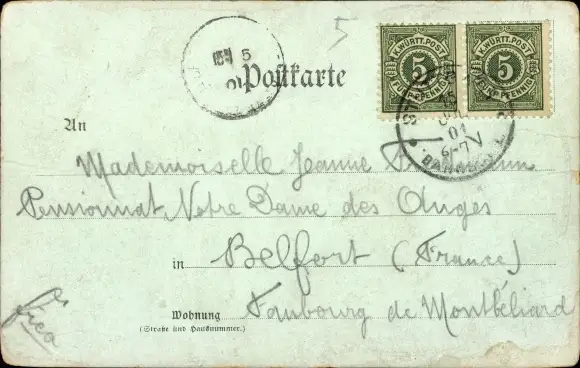 5
Postkarte
K. WÜRTT. POST
5
FÜNF PFENNIG
K. WÜRTT. POST
5
FÜNF PFENNIG
5
01
6-7N
An
Mademoiselle Jeanne
Pensionnat Notre Dame des Anges
in Belfort (France)
Wohnung Faubourg de Montbéliard
(Straße und Hausnummer.)